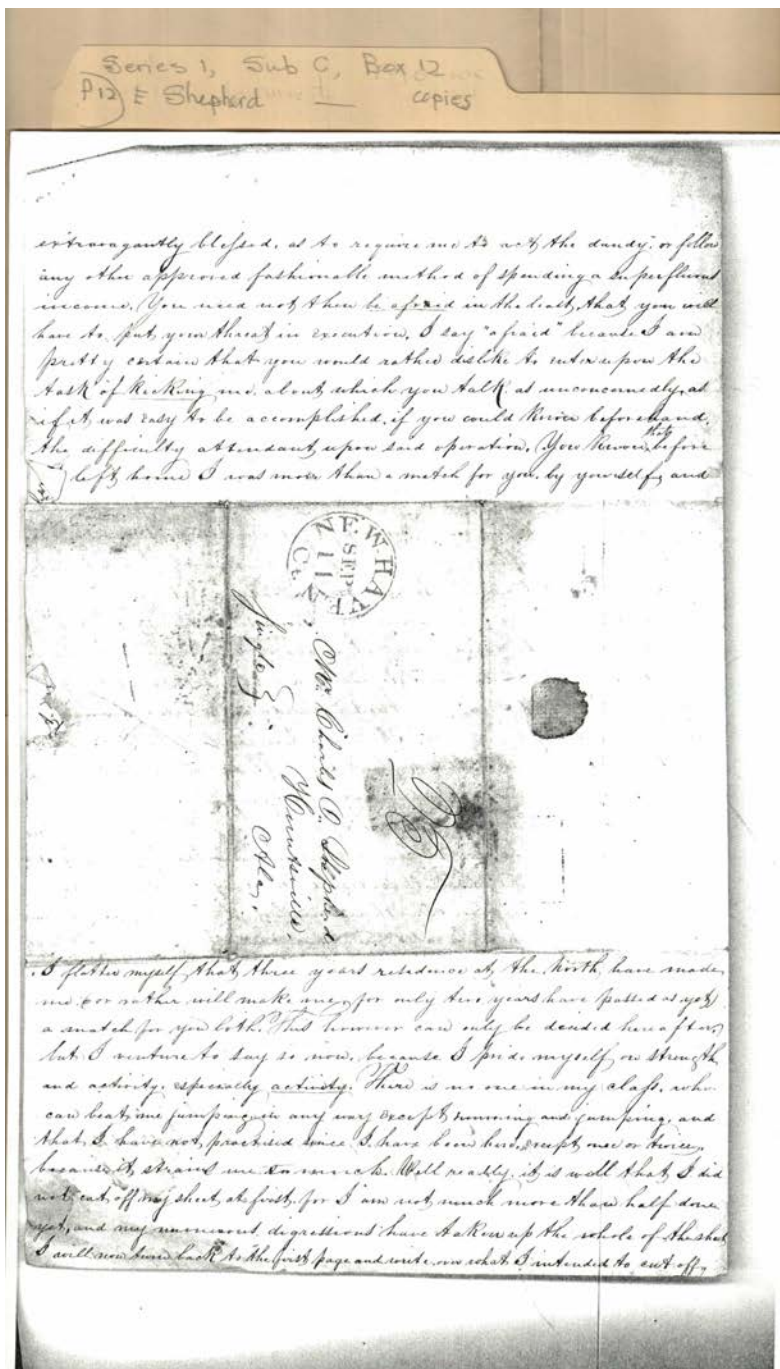 Series 1, Sub C, Box 12
P12 E Shepherd — copies
extravagantly blessed, as to require me to act the dandy, or follow
any other approved fashionable method of spending a superfluous
income. You need not then be afraid in the least, that you will
have to put your threat in execution. I say "afraid" because I am
pretty certain that you would rather dislike to enter upon the
task of kicking me, about which you talk as unconcernedly, as
if it was easy to be accomplished, if you could know beforehand,
the difficulty attendant upon said operation. You know that before
left home I was more than a match for you, by yourself, and
NEW HAVEN Ct.
SEP
11
Mr. Charles D. Shepherd
Huntsville.
Ala.
Single
25
I flatter myself, that three years residence at the North, have made
me (or rather will make me, for only two years have passed as yet)
a match for you both. This however can only be decided hereafter,
but I venture to say so now, because I pride myself on strength
and activity, especially activity. There is no one in my class, who
can beat me jumping in any way except running and jumping, and
that I have not practised since I have been here, except once or twice,
because it strains me too much. Well really, it is well that I did
not cut off my sheet at first, for I am not much more than half done
yet, and my numerous digressions have taken up the whole of the sheet
I will now turn back to the first page and write on what I intended to cut off,